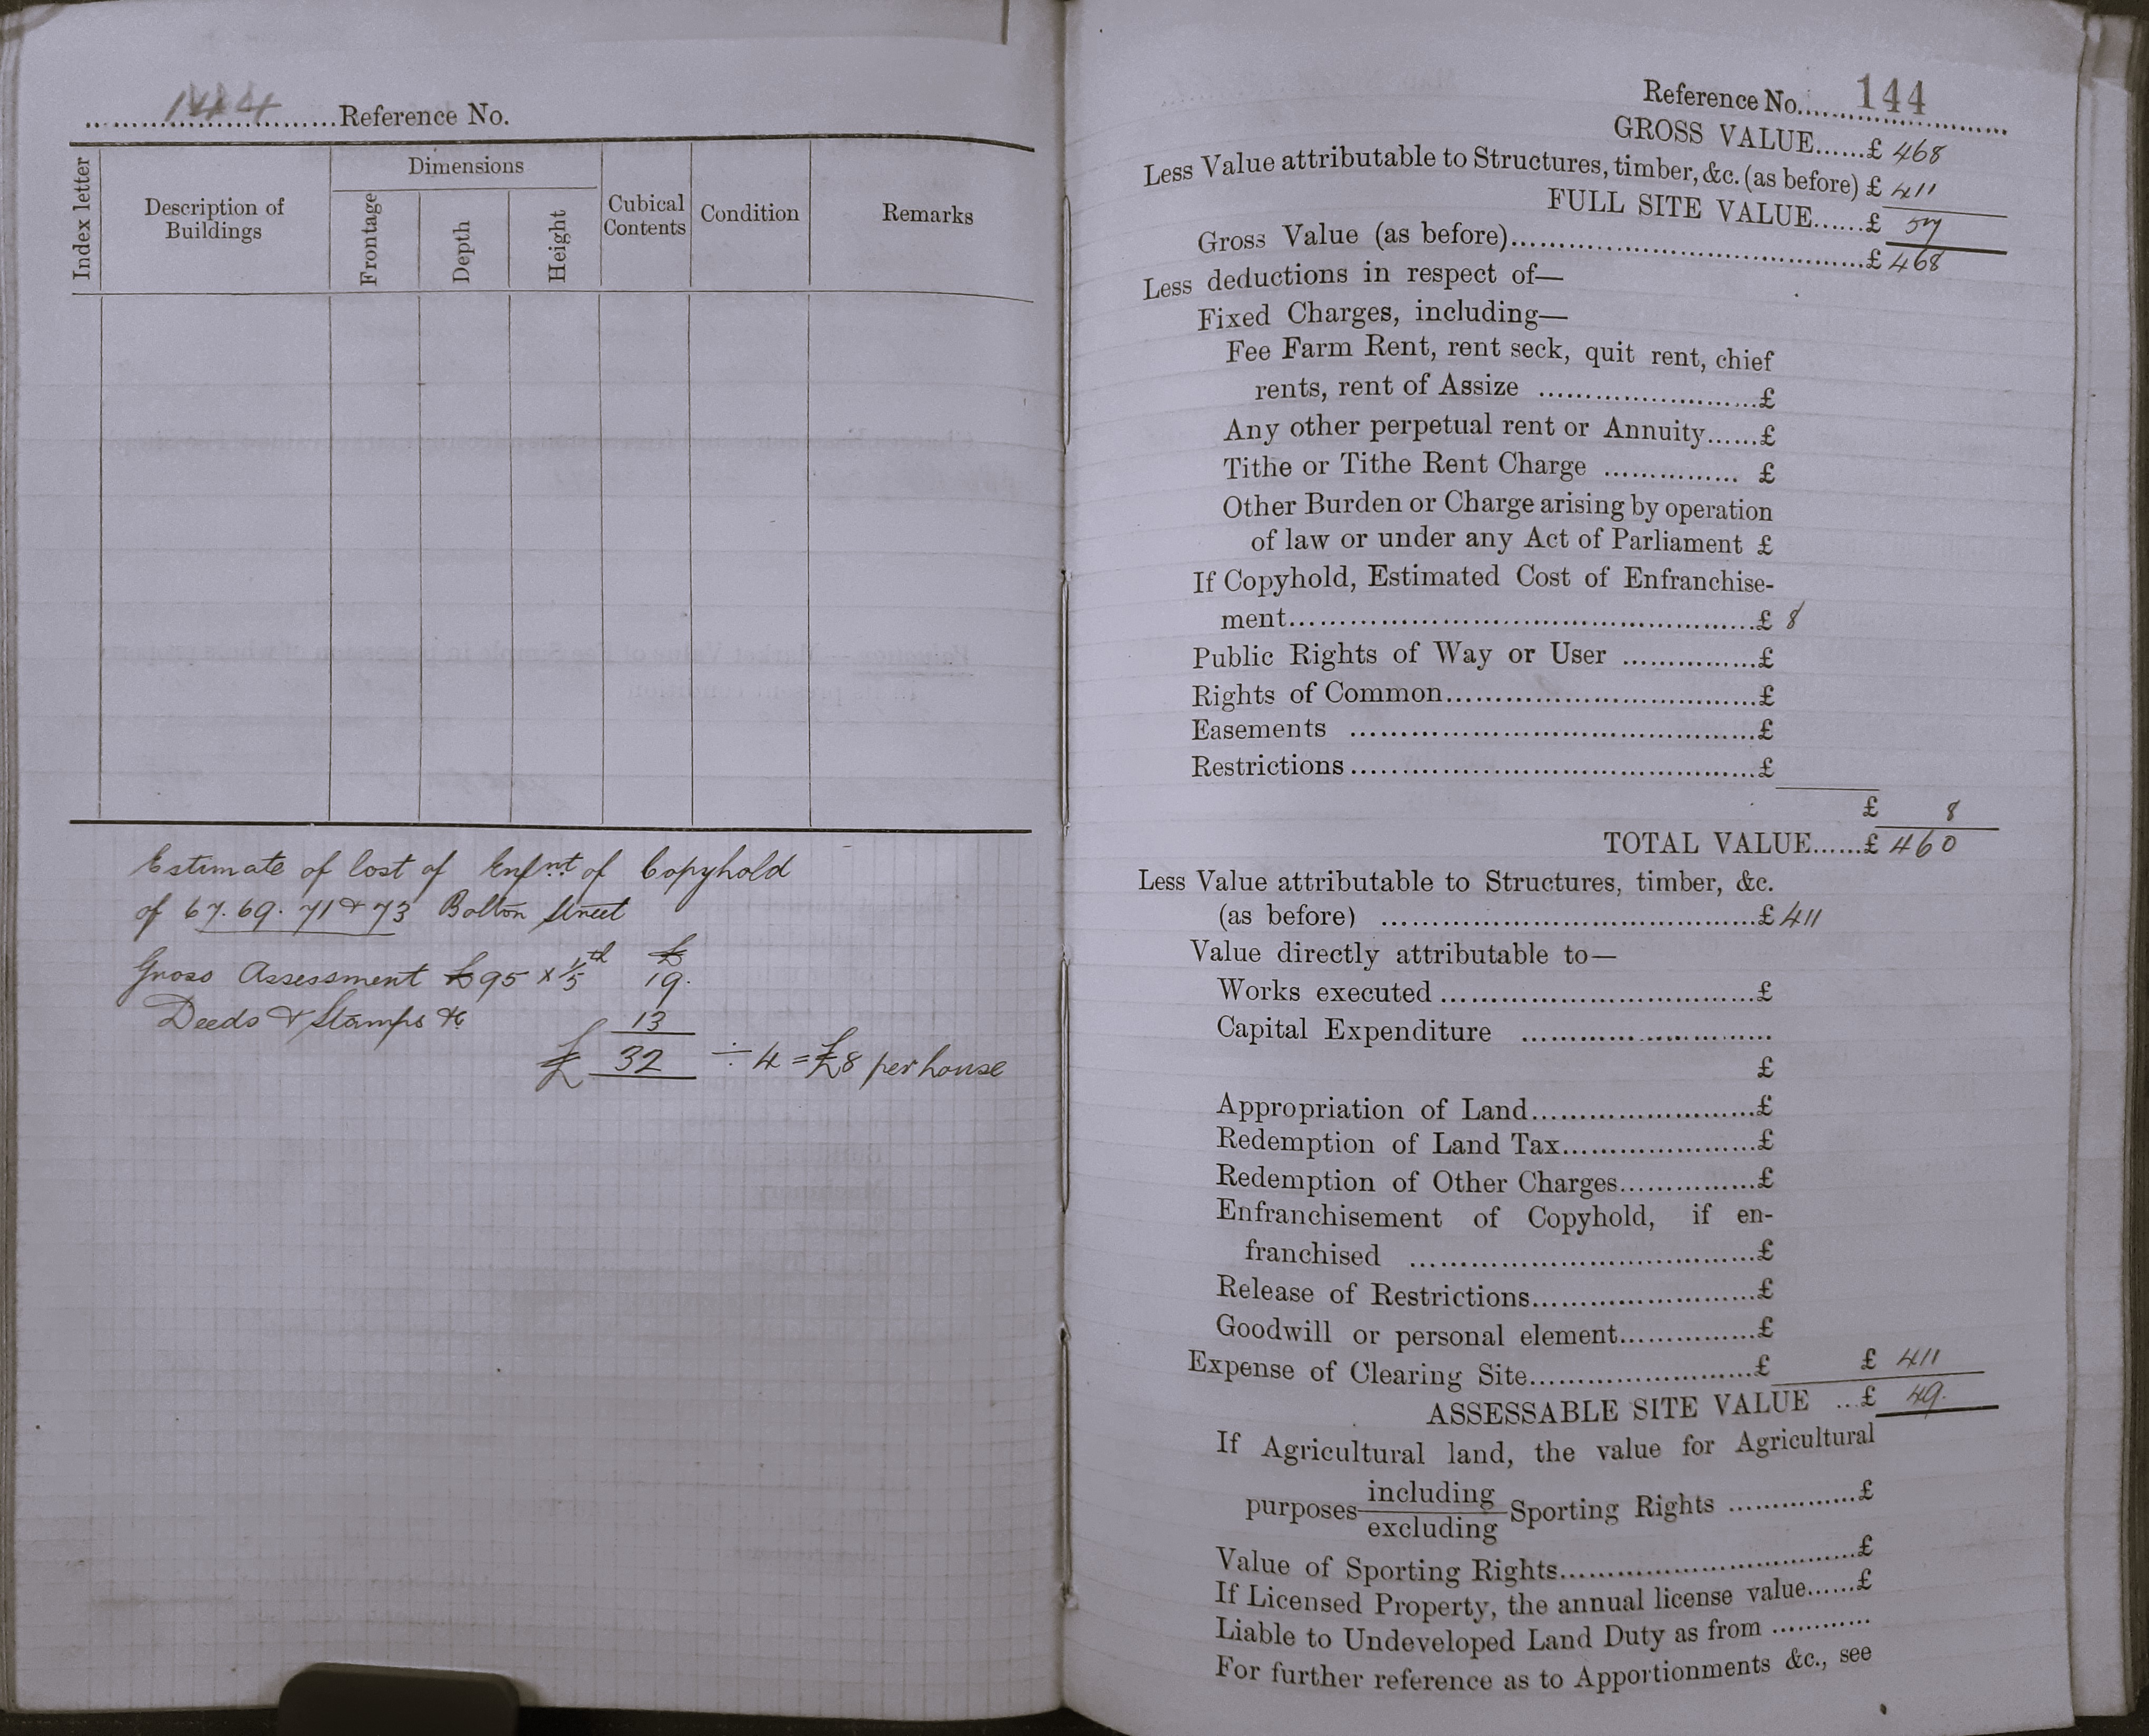 144 Reference No.
Index letter
Description of
Buildings
Dimensions
Frontage
Depth
Height
Cubical
Contents
Condition
Remarks
Estimate of Cost of Enfnt of Copyhold
of 67. 69. 71 & 73 Bolton Street
£
Gross Assessment £95 × 1/5th 19.
Deeds & Stamps &c 13
£ 32 ÷ 4 = £8 per house
Reference No...... 144
GROSS VALUE......£ 468
Less Value attributable to Structures, timber, &c. (as before) £ 411
FULL SITE VALUE......£ 57
Gross Value (as before)..........£ 468
Less deductions in respect of—
Fixed Charges, including—
Fee Farm Rent, rent seck, quit rent, chief
rents, rent of Assize ..........£
Any other perpetual rent or Annuity......£
Tithe or Tithe Rent Charge .......... £
Other Burden or Charge arising by operation
of law or under any Act of Parliament £
If Copyhold, Estimated Cost of Enfranchise-
ment..........£ 8
Public Rights of Way or User ..........£
Rights of Common..........£
Easements ..........£
Restrictions..........£
£ 8
TOTAL VALUE......£ 460
Less Value attributable to Structures, timber, &c.
(as before) ..........£ 411
Value directly attributable to—
Works executed ..........£
Capital Expenditure ..........
£
Appropriation of Land..........£
Redemption of Land Tax..........£
Redemption of Other Charges..........£
Enfranchisement of Copyhold, if en-
franchised ..........£
Release of Restrictions..........£
Goodwill or personal element..........£
Expense of Clearing Site..........£ £ 411
ASSESSABLE SITE VALUE ...£ 49.
If Agricultural land, the value for Agricultural
including
purposes Sporting Rights ..........£
excluding
Value of Sporting Rights..........£
If Licensed Property, the annual license value......£
Liable to Undeveloped Land Duty as from ............
For further reference as to Apportionments &c., see